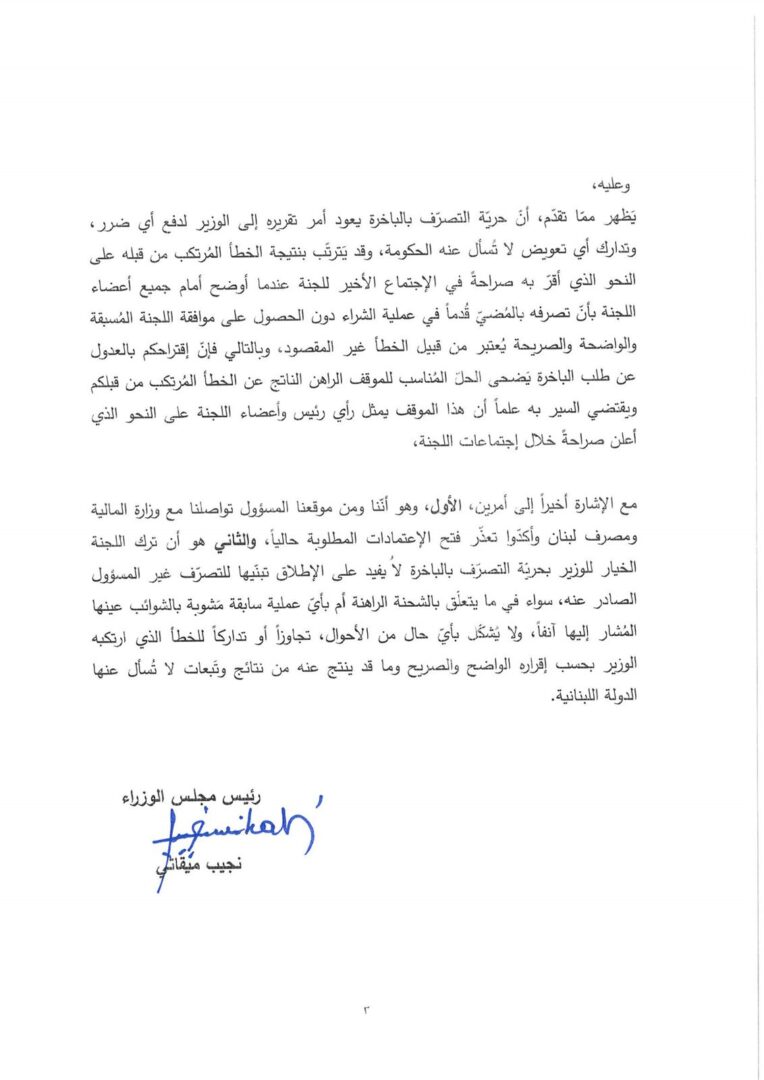 وعليه،
يَظهر ممّا تقدّم، أنّ حريّة التصرّف بالباخرة يعود أمر تقريره إلى الوزير لدفع أي ضرر،
وتدارك أي تعويض لا تُسأل عنه الحكومة، وقد يَترتّب بنتيجة الخطأ المُرتكب من قبله على
النحو الذي أقرّ به صراحةً في الإجتماع الأخير للجنة عندما أوضح أمام جميع أعضاء
اللجنة بأنّ تصرفه بالمُضيّ قُدماً في عملية الشراء دون الحصول على موافقة اللجنة المُسبقة
والواضحة والصريحة يُعتبر من قبيل الخطأ غير المقصود، وبالتالي فإنّ إقتراحكم بالعدول
عن طلب الباخرة يَضحى الحلّ المُناسب للموقف الراهن الناتج عن الخطأ المُرتكب من قبلكم
ويقتضي السير به علماً أن هذا الموقف يمثل رأي رئيس وأعضاء اللجنة على النحو الذي
أعلن صراحةً خلال إجتماعات اللجنة،
مع الإشارة أخيراً إلى أمرين، الأول، وهو أنّنا ومن موقعنا المسؤول تواصلنا مع وزارة المالية
ومصرف لبنان وأكدّوا تعذّر فتح الإعتمادات المطلوبة حالياً، والثاني هو أن ترك اللجنة
الخيار للوزير بحريّة التصرّف بالباخرة لاُ يفيد على الإطلاق تبنّيها للتصرّف غير المسؤول
الصادر عنه، سواء في ما يتعلّق بالشحنة الراهنة أم بأيّ عملية سابقة مَشوبة بالشوائب عينها
المُشار إليها آنفاً، ولا يُشكّل بأيّ حال من الأحوال، تجاوزاً أو تداركاً للخطأ الذي ارتكبه
الوزير بحسب إقراره الواضح والصريح وما قد ينتج عنه من نتائج وتَبعات لا تُسأل عنها
الدولة اللبنانية.
رئيس مجلس الوزراء
نجيب ميقاتي
٣